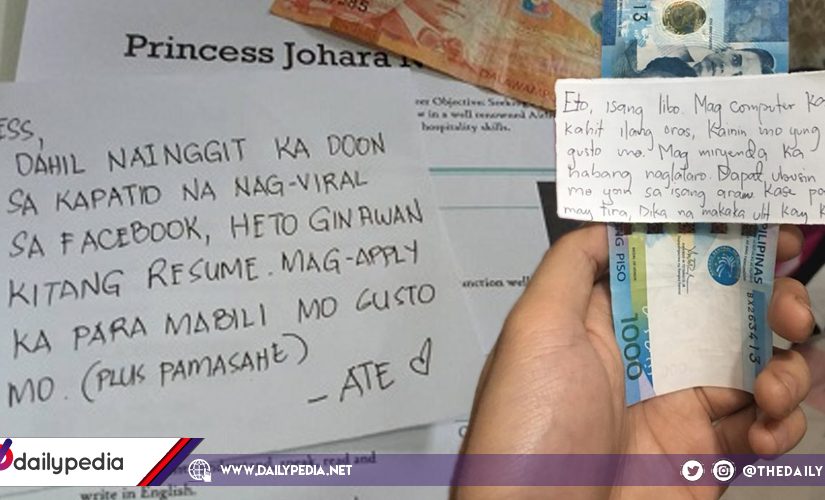 Princess Johara
er Objective: Seeking
w in a well renowned
hospitality skills.
ESS,
DAHIL NAINGGIT KA DOON
SA KAPATID NA NAG-VIRAL
SA FACEBOOK, HETO GINAWAN
KITANG RESUME. MAG-APPLY
KA PARA MABILI MO GUSTO
MO. (PLUS PAMASAHE)
- ATE
unction well
read and
write in English.
Eto, isang libo. Mag computer ka
kahit ilang oras, kainin mo yung
gusto mo. Mag miryenda ka
habang naglalaro. Dapat ubusin
mo yan sa isang araw. Kase pa
may tira, Dika na makaka ulit kay K
PILIPINAS
NG PISO
1000
BX263413
dailypedia
WWW.DAILYPEDIA.NET
@THEDAILY